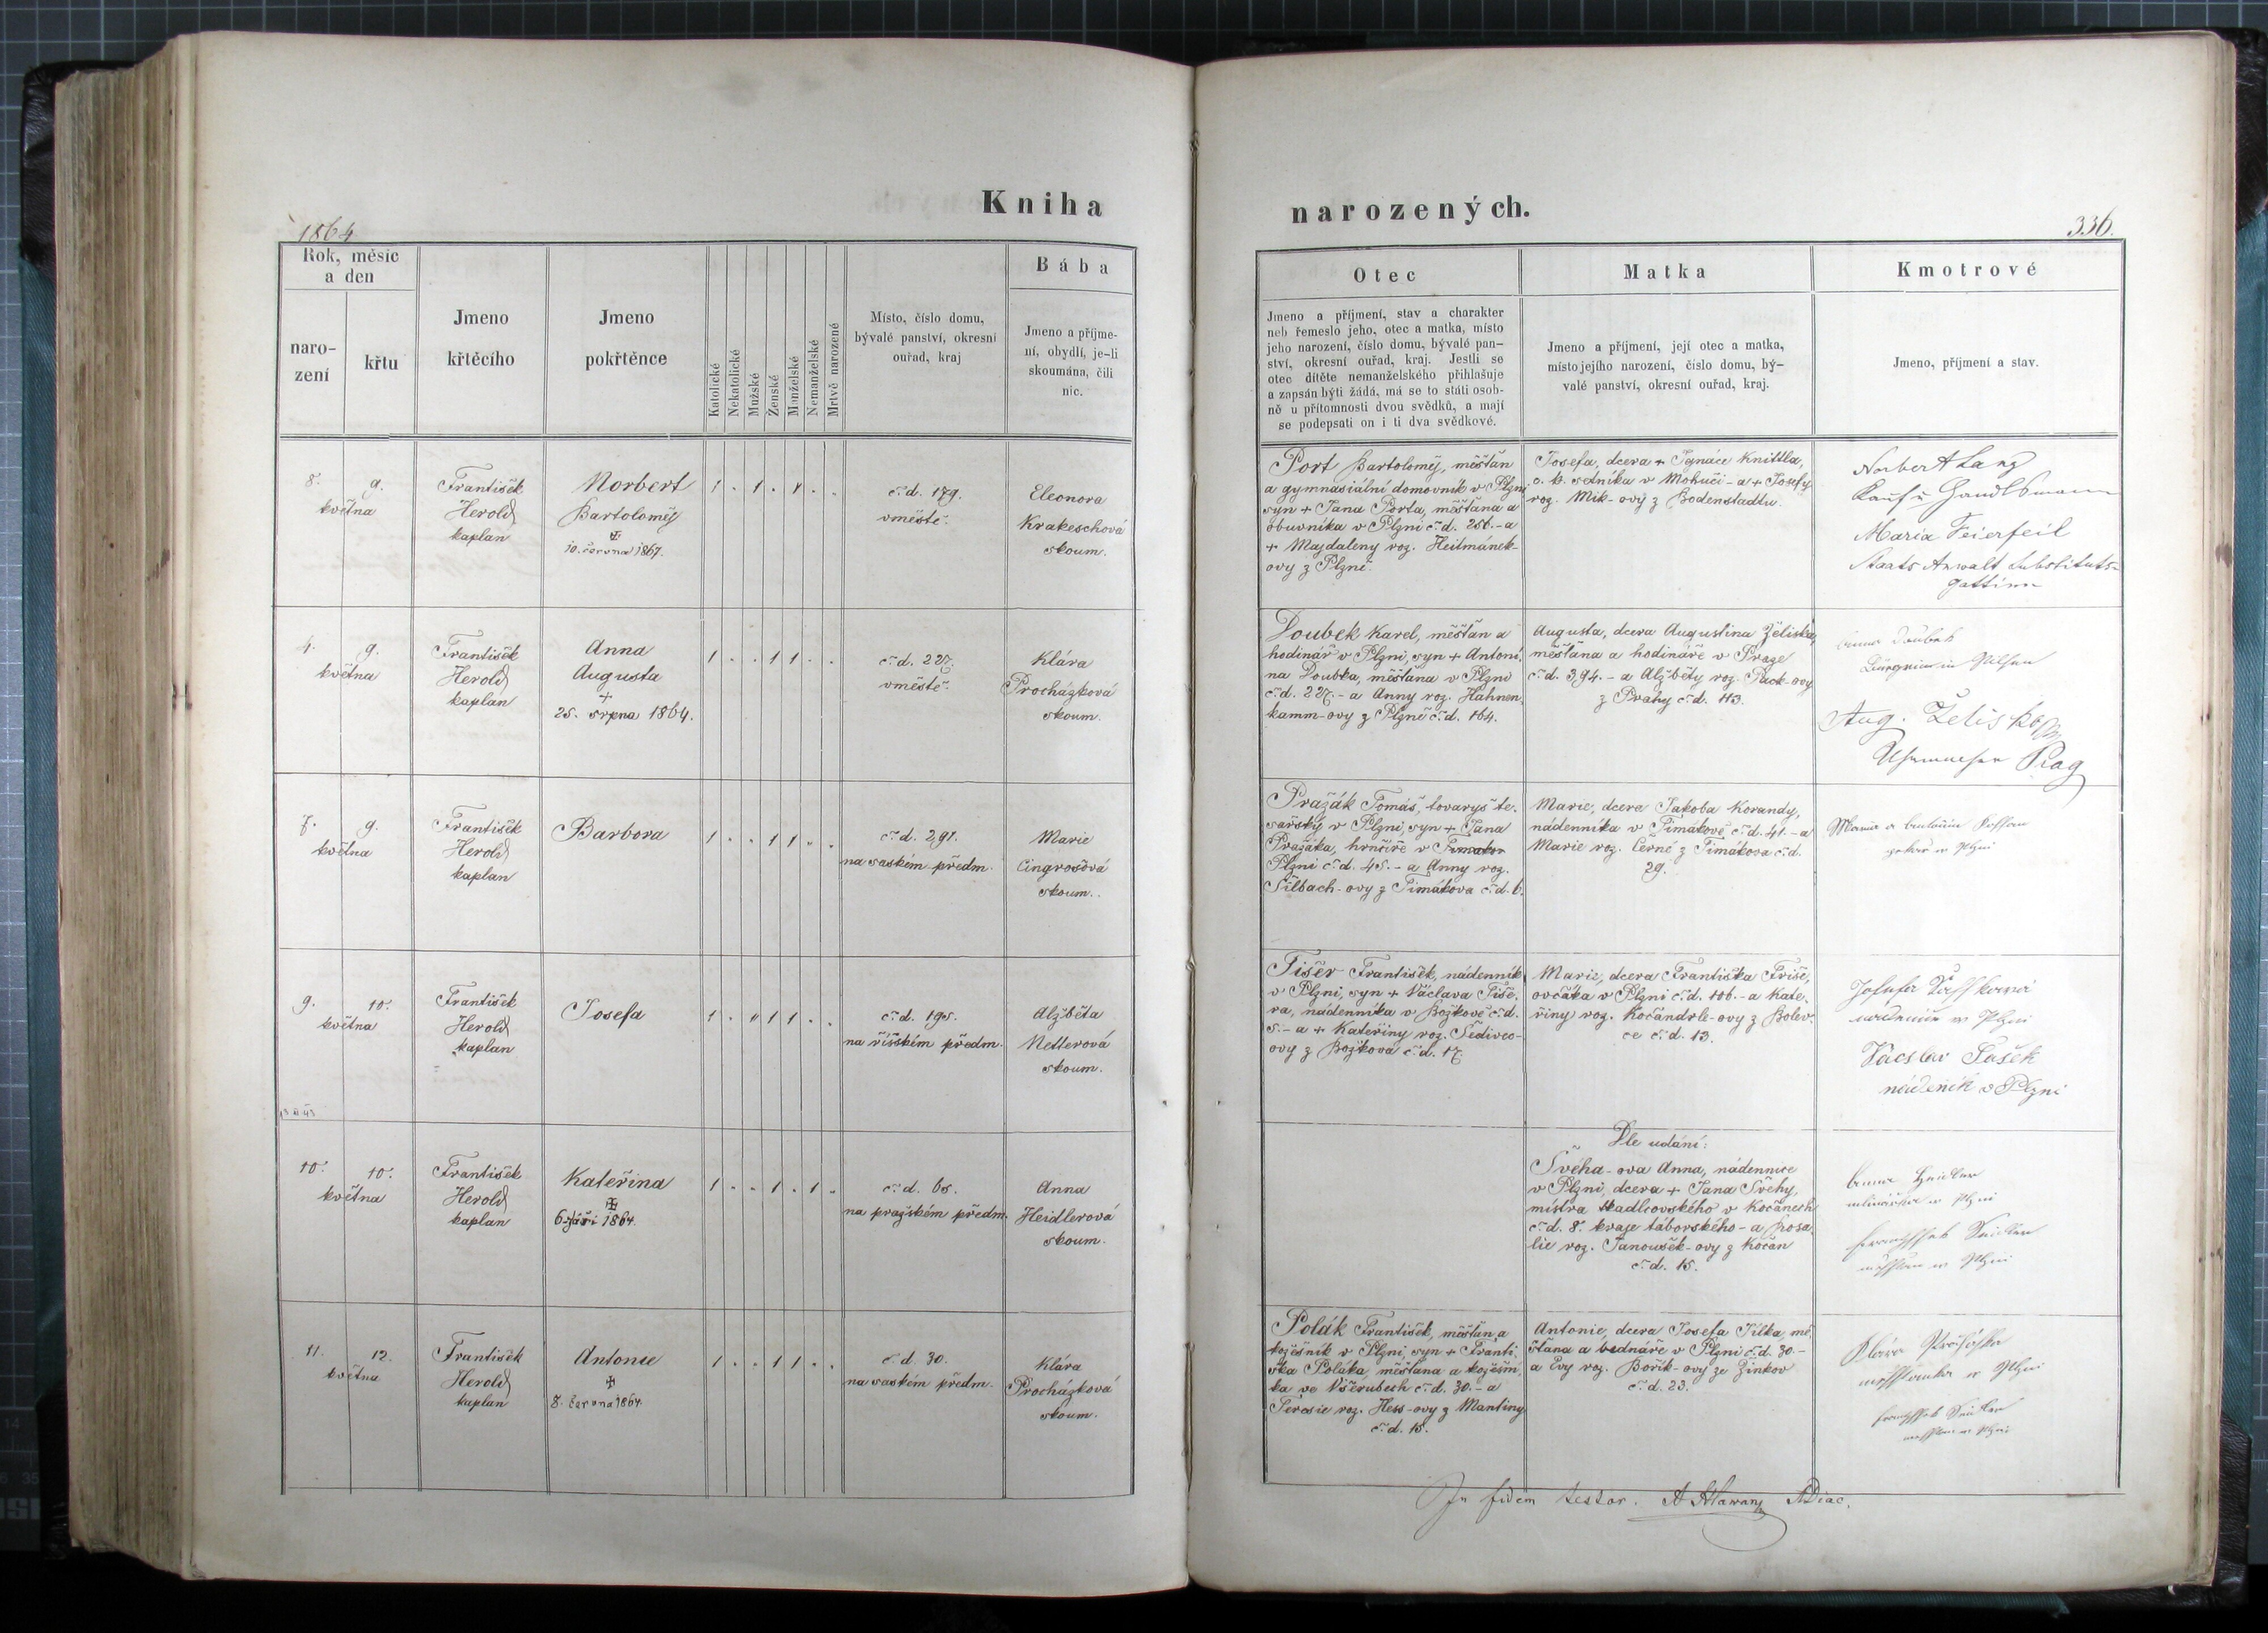 Kniha
1864
Rok, měsíc
a den
naro-
zení
křtu
Jmeno
křtěcího
Jmeno
pokřtěnce
Katolické
Nekatolické
Mužské
Ženské
Manželské
Nemanželské
Mrtvě narozené
Místo, číslo domu,
bývalé panství, okresní
ouřad, kraj
Bába
Jmeno a příjme-
ní, obydlí, je-li
skoumána, čili
nic.
8. 9.
května
František
Herold
kaplan
Norbert
Bartoloměj
10. června 1867.
1 . 1 . 1 . .
č. d. 179.
v městě.
Eleonora
Krakeschová
skoum.
4. 9.
května
František
Herold
kaplan
Anna
Augusta
+
25. srpna 1864.
1 . . 1 1 . .
č. d. 227.
v městě.
Klára
Procházková
skoum.
7. 9.
května
František
Herold
kaplan
Barbora
1 . . 1 1 . .
č. d. 291.
na saském předm.
Marie
Cingrošová
skoum.
9. 10.
května
František
Herold
kaplan
Josefa
1 . . 1 1 . .
č. d. 195.
na říšském předm.
Alžběta
Netterová
skoum.
10. 10.
května
František
Herold
kaplan
Kateřina
6. září 1864.
1 . . 1 . 1 .
č. d. 65.
na pražském předm.
Anna
Heidlerová
skoum.
11. 12.
května
František
Herold
kaplan
Antonie
8. června 1864.
1 . . 1 1 . .
č. d. 30.
na saském předm.
Klára
Procházková
skoum.
narozených.
336.
Otec
Jmeno a příjmení, stav a charakter
neb řemeslo jeho, otec a matka, místo
jeho narození, číslo domu, bývalé pan-
ství, okresní ouřad, kraj. Jestli se
otec dítěte nemanželského přihlašuje
a zapsán býti žádá, má se to státi osob-
ně u přítomnosti dvou svědků, a mají
se podepsati on i ti dva svědkové.
Matka
Jmeno a příjmení, její otec a matka,
místo jejího narození, číslo domu, bý-
valé panství, okresní ouřad, kraj.
Kmotrové
Jmeno, příjmení a stav.
Port Bartoloměj, měšťan
a gymnasiální domovník v Plzni
syn + Jana Porta, měšťana a
obuvníka v Plzni č. d. 256. - a
+ Majdaleny roz. Heitmánek-
ovy z Plzně.
Josefa, dcera + Ignáce Knittla,
c. k. setníka v Mohuči - a + Josefy
roz. Mik-ovy z Bodenstadtu.
Norbert Lang
Kauf u Handlsmann
Maria Feierfeil
Staats Anwalt Substituts-
gattinn
Doubek Karel, měšťan a
hodinář v Plzni, syn + Antoní-
na Doubka, měšťana v Plzni
č. d. 227. - a Anny roz. Hahnen-
kamm-ovy z Plzně č. d. 164.
Augusta, dcera Augustina Želiska,
měšťana a hodináře v Praze
č. d. 394. - a Alžběty roz. Pack-ovy
z Prahy č. d. 113.
Anna Doubek
Bürgerin in Pilsen
Aug. Zelisko
Uhrmacher Prag
Pražák Tomáš, tovaryš te-
sařský v Plzni, syn + Jana
Pražáka, hrnčíře v
Plzni č. d. 45. - a Anny roz.
Šilbach-ovy z Timákova č. d. 6.
Marie, dcera Jakoba Korandy,
nádenníka v Timákově č. d. 41. - a
Marie roz. Černé z Timákova č. d.
29.
Maria a
pekař v Plzni
Tišer František, nádenník
v Plzni, syn + Václava Tiše-
ra, nádenníka v Božkově č. d.
5. - a + Kateřiny roz. Šedivec-
ovy z Božkova č. d. 17.
Marie, dcera Františka Friše,
ovčáka v Plzni č. d. 106. - a Kate-
řiny roz. Kočándrle-ovy z Bolev-
ce č. d. 13.
Josefa
v Plzni
Václav Sašek
nádeník v Plzni
Dle udání:
Švéha-ova Anna, nádennice
v Plzni, dcera + Jana Švéhy,
mistra tkadlcovského v Kočanech
č. d. 8. kraje táborského - a Rosa-
lie roz. Janoušek-ovy z Kočan
č. d. 15.
Anna Heidler
v Plzni
v Plzni
Polák František, měšťan a
kožešník v Plzni, syn + Franti-
ška Poláka, měšťana a kožešní-
ka ve Všerubech č. d. 30. - a
Teresie roz. Hess-ovy z Mantiny
č. d. 15.
Antonie, dcera Josefa Jílka, mě-
šťana a bednáře v Plzni č. d. 30. -
a Evy roz. Bořík-ovy ze Žinkov
č. d. 23.
Klára
v Plzni
v Plzni
In fidem testor. A Hlawan ADiac.